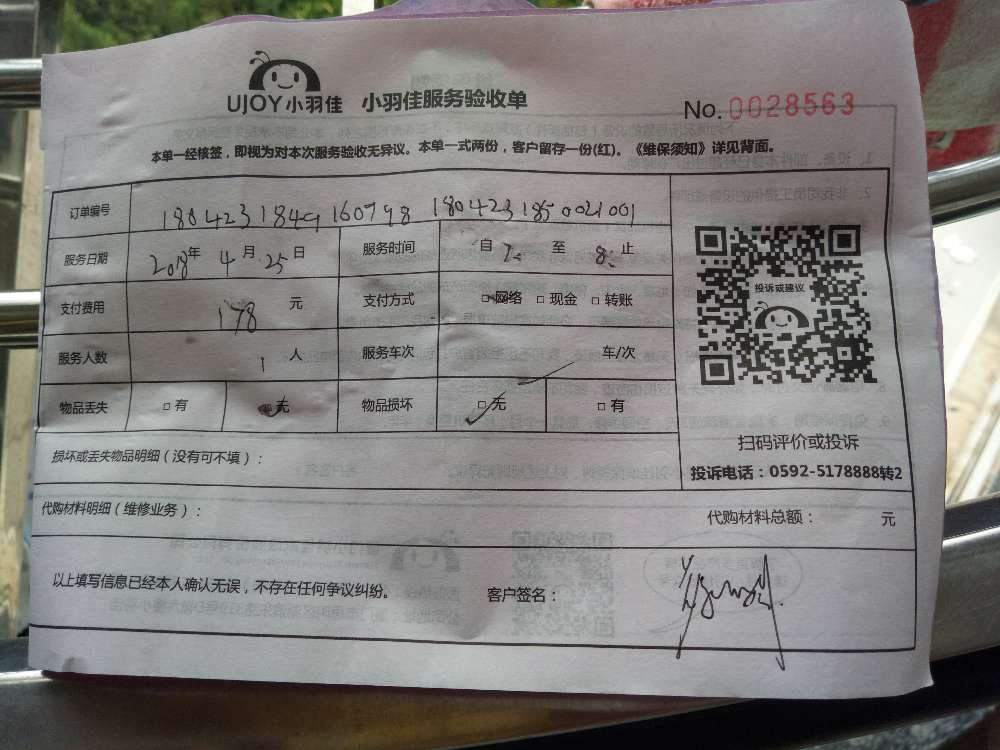 UJOY小羽佳 小羽佳服务验收单
No. 0028563
本单一经核签，即视为对本次服务验收无异议。本单一式两份，客户留存一份(红)。《维保须知》详见背面。
订单编号 180423184 160798 180423185 0021001
服务日期 2018年 4月 25日 服务时间 自 7: 至 8: 止
投诉或建议
支付费用 178 元 支付方式 □网络 □现金 □转账
服务人数 1 人 服务车次 车/次
物品丢失 □有 无 物品损坏 □无 □有
扫码评价或投诉
损坏或丢失物品明细（没有可不填）：
投诉电话：0592-5178888转2
代购材料明细（维修业务）： 代购材料总额： 元
以上填写信息已经本人确认无误，不存在任何争议纠纷。 客户签名：